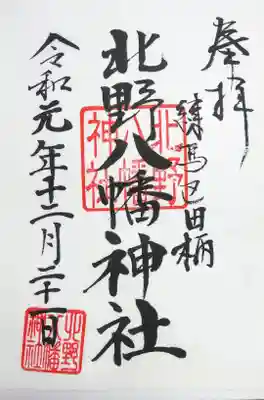 奉拝
練馬区田柄
北野八幡神社
令和元年十二月二十一日
北野
八幡
神社
北野
八幡
神社